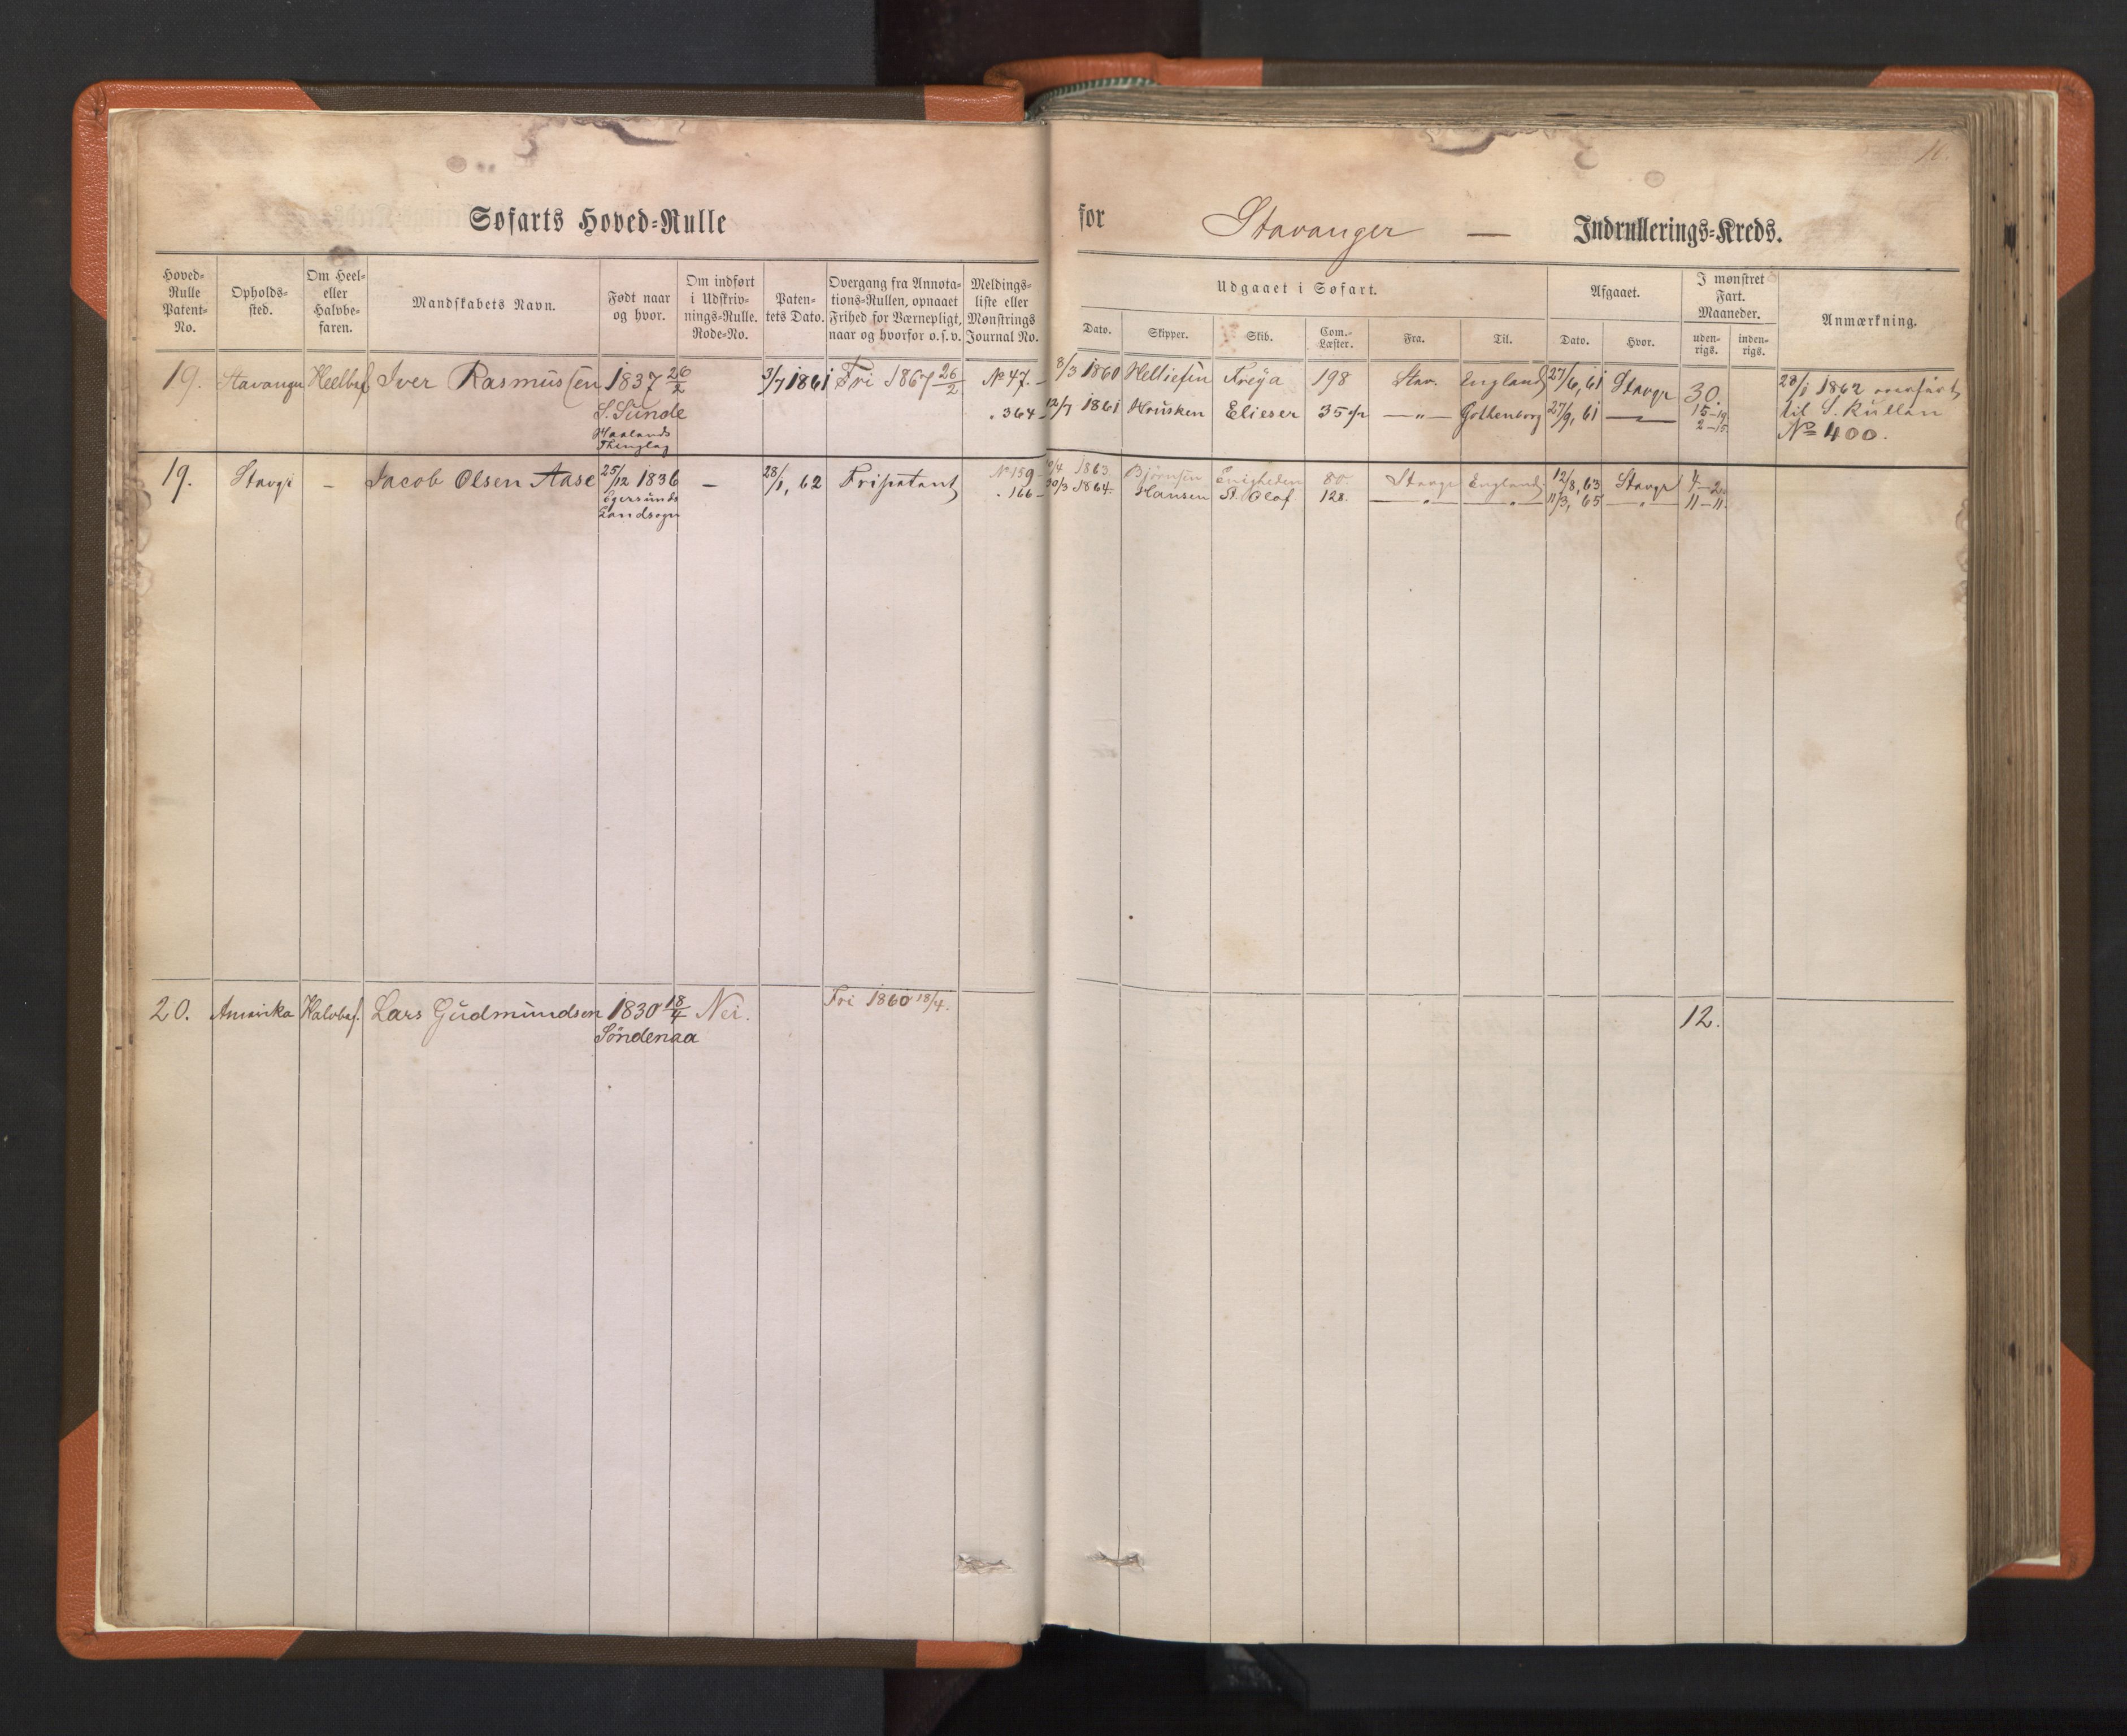 10.
Søfarts Hoved-Rulle
for Stavanger — Indrullerings-Kreds.
Hoved-Rulle Patent-No.
Opholds-sted.
Om Heel- eller Halvbe-faren.
Mandskabets Navn.
Født naar og hvor.
Om indført i Udskriv-nings-Rulle. Rode-No.
Paten-tets Dato.
Overgang fra Annota-tions-Rullen, opnaaet Frihed for Værnepligt, naar og hvorfor o.s.v.
Meldings-liste eller Mønstrings Journal No.
Udgaaet i Søfart.
Dato. Skipper. Skib. Com.-Læster. Fra. Til.
Afgaaet.
Dato. Hvor.
I mønstret Fart. Maaneder.
uden-rigs. inden-rigs.
Anmærkning.
19. Stavanger Heelbef Iver Rasmussen 1837 26/2 3/7 1861 Fri 1867 26/2 No 47. 8/3 1860 Helliesen Freya 198 Stav. England 27/6, 61 Stavgr 30. 28/1 1862 overført
S. Sunde " 364 12/7 1861 Housken Elieser 35 — " — Gottenborg 27/9, 61 — 15–19 til S. Rullen
Haalands 2–15 No 400.
Thinglag
19. Stavgr – Jacob Olsen Aase 25/12 1836 – 28/1, 62 Fripatent No 159 1863 Bjørnsen Enigheden 80 Stavgr England 12/8, 63 Stavgr 4–2
Egersunds " 166 30/3 1864. Hansen St. Olaf 128. — " — — " — 11/3, 65 — " — 11–11.
Landsogn
20. Amerika Halvbef. Lars Gudmundsen 1830 18/4 Nei. Fri 1860 18/4. 12.
Søndenaa